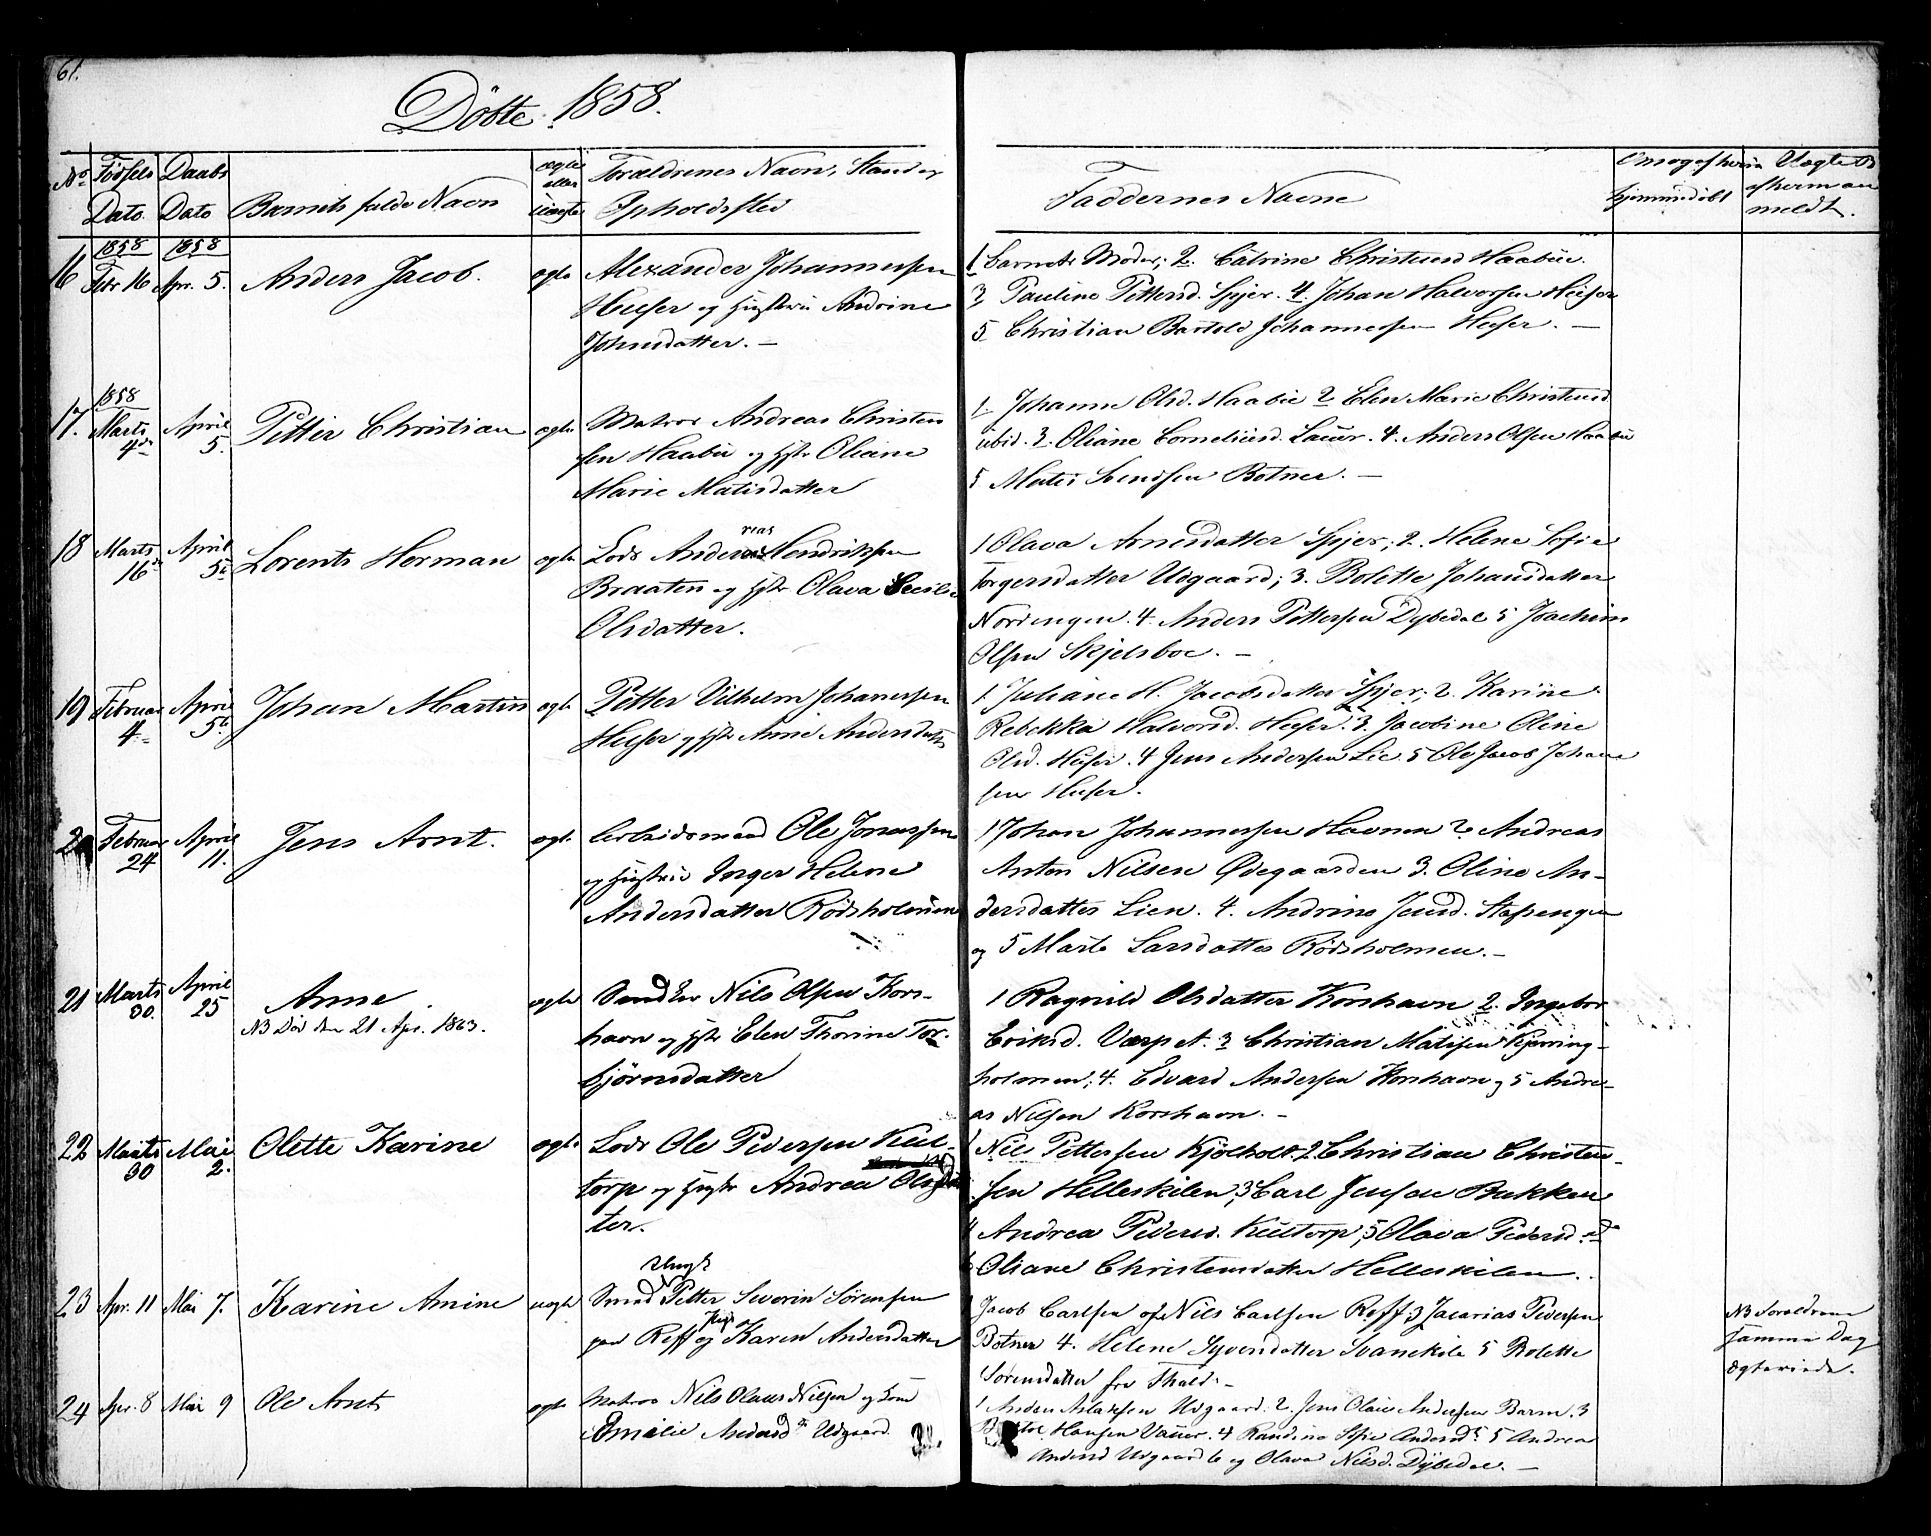 61.
Döbte 1858.
No Födsels Dato
Daabs Dato
Barnets fulde Navn
ægte eller uægte
Forældrenes Navn, Stand og Opholdssted
Faddernes Navne
meldt.
16 1858 Febr 16 1858 Apr. 5. Anders Jacob. ægte
Alexander Johannessen
Huser og Hustru Andrine
Johnsdatter. —
1 Barnets Moder; 2. Catrine Christensd Haabu.
3 Pauline Pettersd. Spjer. 4. Johan Halvorsen Huser
5 Christian Bartold Johannessen Huser. —
17. 1858 Marts 4de April 5. Petter Christian ægte
Matros Andreas Christen
sen Haabu og Hstr Oliane
Marie Matisdatter
1 Johanne Olsd. Haabu 2 Elen Marie Christensd
ibid. 3. Oliane Corneliusd. Lauer. 4. Anders Olsen Haabu
5 Matis Svendsen Botner. —
18 Marts 16de April 5te Lorents Herman ægte
Lods Andreas Hendriksen
Braaten og Hstr Olava Cecilie
Olsdatter.
1 Olava Arnesdatter Spjer; 2. Helene Sofie
Torgersdatter Udgaard; 3. Bolette Johansdatter
Nordengen. 4. Anders Pettersen Dybedal 5 Joachim
Olsen Skjelsboe. —
19 Februar 4de April 5te Johan Martin ægte
Petter Vilhelm Johanessen
Huser og Hstr Anne Andersdatter
1 Juliane H. Jacobsdatter Spjer; 2. Karine
Rebekka Halvorsd. Huser. 3. Jacobine Oline
Olsd. Huser. 4 Jens Andersen Lie. 5 Ole Jacob Johane
sen Huser.
20 Februar 24 April 11. Jens Arnt. ægte
Arbeidsmand Ole Jonassen
og Hustrue Inger Helene
Andersdatter Rödsholmen
1 Johan Johannessen Havnen 2 Andreas
Anton Nilsen Ødegaarden 3. Oline An-
dersdatter Lien. 4. Andrine Jensd. Stafsengen
og 5 Marte Larsdatter Rödsholmen. —
21 Marts 30. April 25 Anne ægte
NB Död den 21 Apr. 1863.
Nils Olsen Kors-
havn og Hstr Elen Thorine Tor-
björnsdatter
1 Ragnild Olsdatter Korshavn 2. Ingebor
Eriksd. Værpet. 3 Christian Matisen Kjerring-
holmen; 4. Edvard Andersen Korshavn og 5 Andre-
as Nilsen Korshavn. —
22 Marts 30 Mai 2. Olette Karine ægte
Lods Ole Pedersen Kiil-
torp og Hustr Andrea Olsdat
ter.
1 Nils Pettersen Kjölholt 2 Christian Christen-
sen Helleskilen, 3 Carl Jensen Bakken
4 Andrea Pedersd. Kiiltorp, 5 Olava Pedersd. do
6 Oliane Christensdatter Helleskilen.
23 Apr. 11 Mai 7. Karine Amine uægte
Ungk
Smed Petter Severin Sörensen
paa Reff og Pige Karen Andersdatter
1 Jacob Carlsen og 2 Nils Carlsen Reff; 3 Zacarias Pedersen
Botner 4. Helene Syvensdatter Svanekile 5 Bolette
Sörensdatter fra Thald. —
NB Foreldrene
samme Dag
ægteviede.
24 Apr. 8 Mai 9 Ole Arnt ægte
Matros Nils Olaus Nilsen og Kone
Emilie Andersdtr Udgaard
1 Anders Aslaksen Udgaard. 2. Jens Olaus Andersen Barm. 3
Hansen Vauer. 4 Randine Sofie Andersdtr 5 Andrea
Andersd Udgaard 6 og Olava Nilsd. Dybedal. —